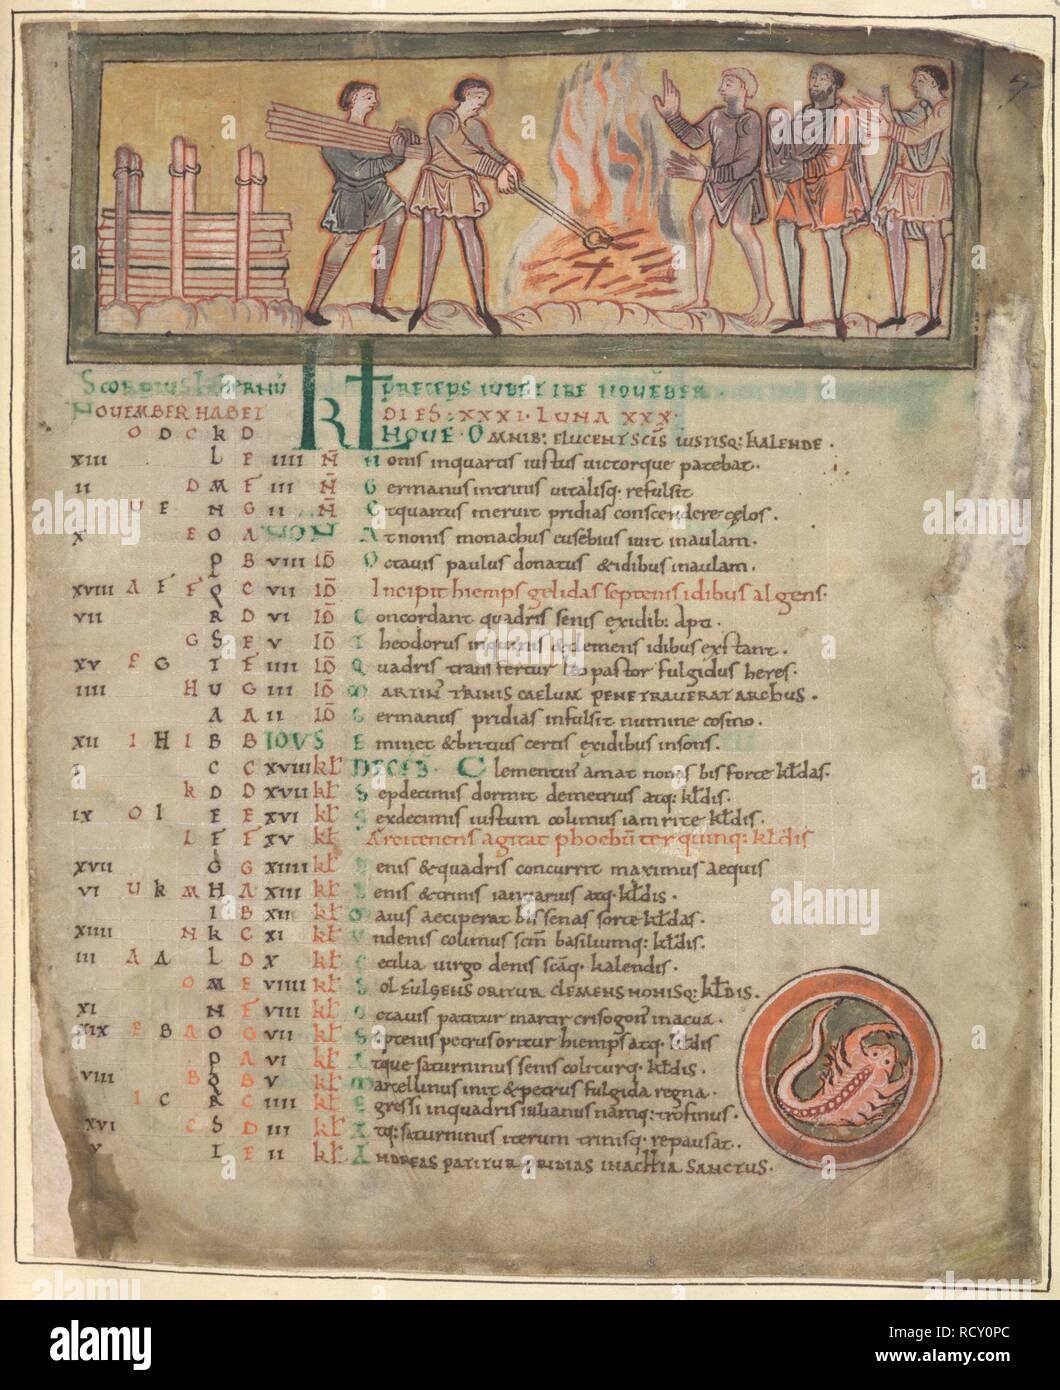 Scorpius hibernū
praeceps iubet ire novēber
November habet
dies: xxxi · Luna xxx ·
O D C K D
nove · Omnib: elucent scīs iustisq: kalende .
xiii L E iiii N̄ Nonis inquartis iustus victorque patebat .
ii D M F iii N̄ Germanus intrius vitalisq. refulsit
U E N G ii N̄ Etquartus meruit pridias conscendere cęlos .
x E O A NON Atnonis monachus eusebius ivit inaulam .
P B viii ID Octavis paulus donatus &idibus inaulam .
xviii A F F Q C vii ID Incipit hiemps gelidas septenis idibus algens .
vii R D vi ID Concordant quadris senis exidib:
G S E v ID Theodorus &clemens idibus exstant .
xv F G T F iiii ID Quadris transfertur pastor fulgidus heres .
iiii H U G iii ID Martin trinis caelum penetraverat archus .
A A ii ID Germanus pridias infulsit numine cosmo .
xii I H I B B IDVS Eminet &britius certis exidibus insons .
i C C xviii kł DECEB · Clementin' amat nonas bis forte kłdas .
k D D xvii kł Sepdecimis dormit demetrius atq: kłdis .
ix O I E E xvi kł Sexdecimis iustum colimus iam rite kłdis .
L F F xv kł Arcitenens agitat phoebū ter quinq: kłdis
xvii G G xiiii kł Denis &quadris concurrit maximus aequis
vi U k M H A xiii kł Denis &trinis ianuarius atq: kłdis .
I B xii kł Gaius acciperat bis senas sorte kłdas .
xiiii N k C xi kł Undenis colimus scīm basiliumq: kłdis .
iii A A L D x kł Cecilia virgo denis scāq. kalendis .
O M E viiii kł Sol fulgens oritur clemens nonisq: kłdis .
xi N F viii kł Octavis patitur martir crisogon'
xix E B A O G vii kł Septenis petrus oritur hiemps atq. kłdis
P A vi kł Atque saturninus senis coliturq. kłdis .
viii B Q B v kł Martellinus init &petrus fulgida regna .
I C R C iiii kł Egressi inquadris iulianus namq: trofimus .
xvi C S D iii kł Atq: saturninus iterum trinisq. repausat .
v T E ii kł Andreas patitur pridias inachia sanctus .
alamy
alamy
Image ID: RCY0PC
www.alamy.com